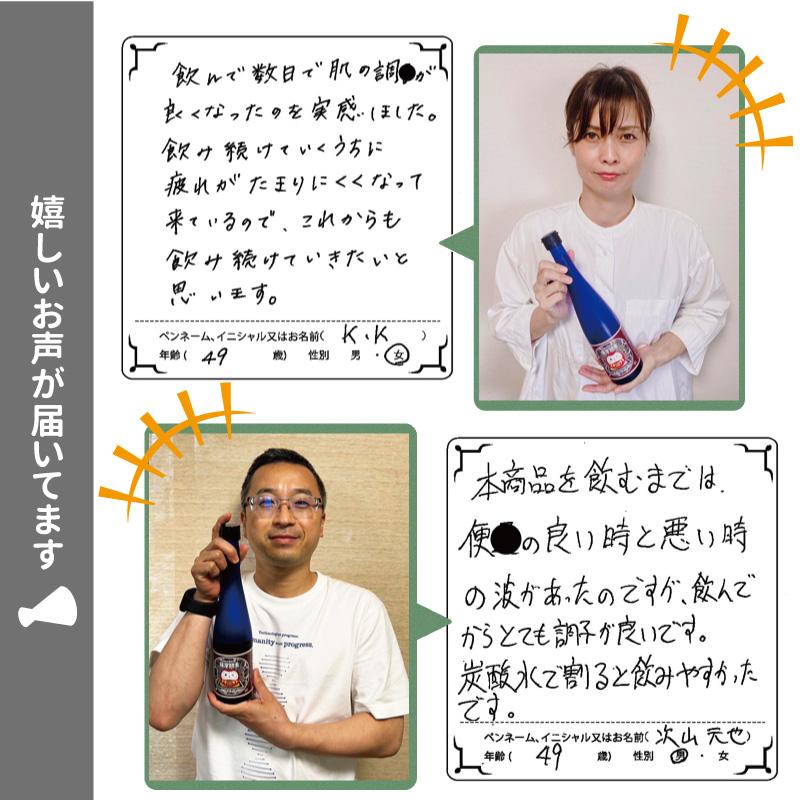 嬉しいお声が届いてます
飲んで数日で肌の調●が
良くなったのを実感しました。
飲み続けていくうちに
疲れがたまりにくくなって
来ているので、これからも
飲み続けていきたいと
思います。
ペンネーム、イニシャル又はお名前( K.K )
年齢( 49 歳) 性別 男 ・ 女
本商品を飲むまでは、
便●の良い時と悪い時
の波があったのですが、飲んで
からとても調子が良いです。
炭酸水で割ると飲みやすかった
です。
ペンネーム、イニシャル又はお名前( 次山元也 )
年齢( 49 歳) 性別 男 ・ 女
Technologies progress.
manity progress.